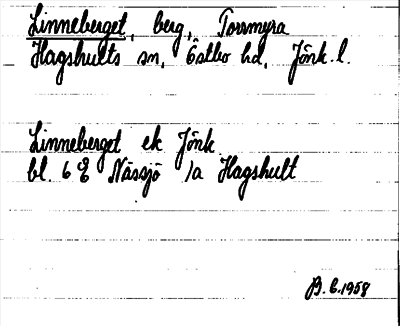 Linneberget, berg, Torrmyra
Hagshults sn, Östbo hd, Jönk. l.
Linneberget ek Jönk
bl. 6 E Nässjö 1a Hagshult
B. E. 1958